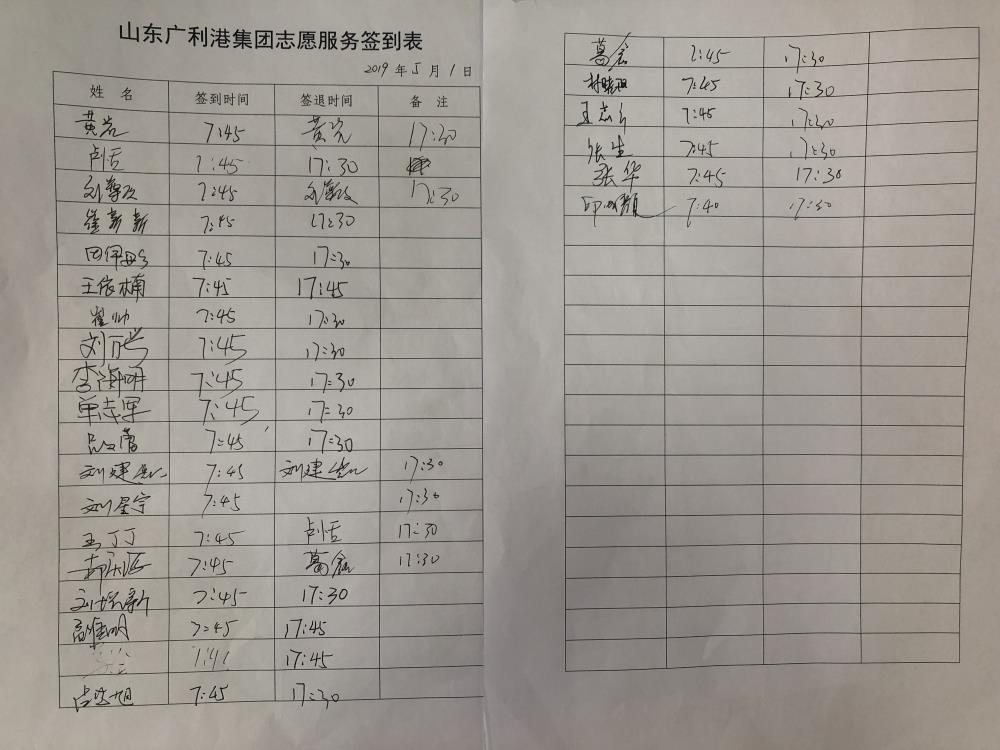 山东广利港集团志愿服务签到表
2019 年 5 月 1 日
姓 名 签到时间 签退时间 备 注
黄岩 7:45 黄岩 17:30
7:45 17:30
7:45 17:30
崔新新 7:45 17:30
7:45 17:30
王依楠 7:45 17:45
崔帅 7:45 17:30
刘 7:45 17:30
李海明 7:45 17:30
单志军 7:45 17:30
7:45 17:30
刘建 7:45 刘建 17:30
刘星宇 7:45 17:30
王丁丁 7:45 17:30
7:45 葛鑫 17:30
刘 新 7:45 17:30
7:45 17:45
17:45
旭 7:45 17:30
葛鑫 7:45 17:30
7:45 17:30
王志 7:45 17:30
张生 7:45 17:30
张华 7:45 17:30
7:40 17:30